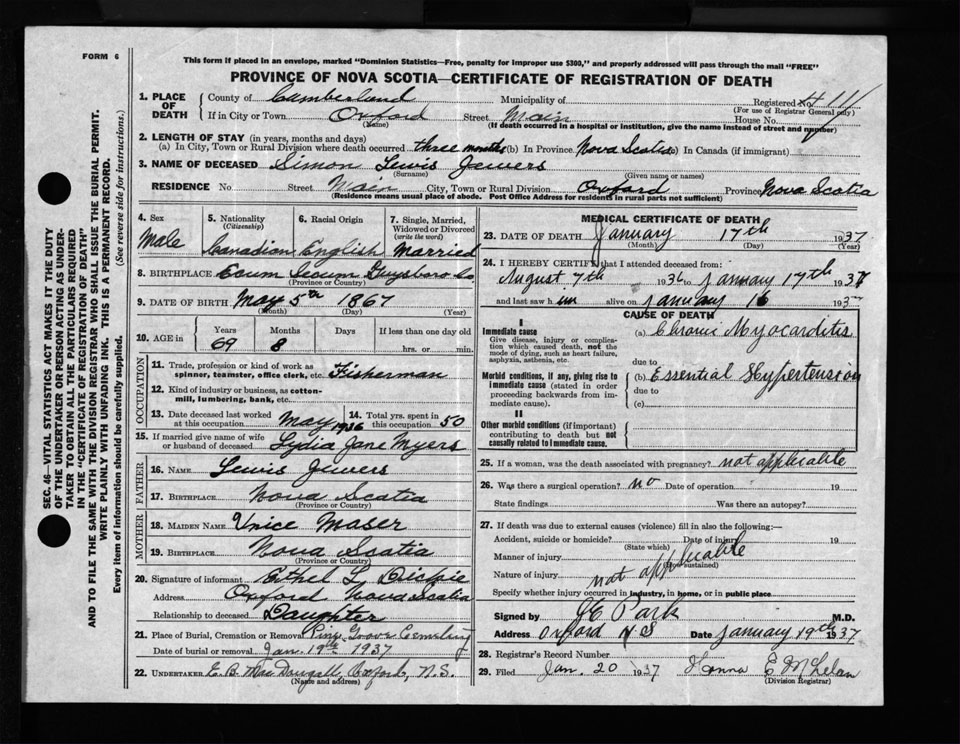 FORM 6
This form if placed in an envelope, marked "Dominion Statistics—Free, penalty for improper use $300," and properly addressed will pass through the mail "FREE"
PROVINCE OF NOVA SCOTIA—CERTIFICATE OF REGISTRATION OF DEATH
SEC. 46—VITAL STATISTICS ACT MAKES IT THE DUTY
OF THE UNDERTAKER OR PERSON ACTING AS UNDER-
TAKER TO OBTAIN ALL THE PARTICULARS REQUIRED
IN THE "CERTIFICATE OF REGISTRATION OF DEATH"
AND TO FILE THE SAME WITH THE DIVISION REGISTRAR WHO SHALL ISSUE THE BURIAL PERMIT.
WRITE PLAINLY WITH UNFADING INK. THIS IS A PERMANENT RECORD.
Every item of information should be carefully supplied. (See reverse side for instructions.)
1. PLACE OF DEATH County of Cumberland Municipality of Registered No. 4111
(For use of Registrar General only)
If in City or Town Oxford Street Main House No.
(Name) (If death occurred in a hospital or institution, give the name instead of street and number)
2. LENGTH OF STAY (in years, months and days)
(a) In City, Town or Rural Division where death occurred three months (b) In Province Nova Scotia (c) In Canada (if immigrant)
3. NAME OF DECEASED Simon Lewis Jewers
(Surname) (Given name or names)
RESIDENCE No Street Main City, Town or Rural Division Oxford Province Nova Scotia
(Residence means usual place of abode. Post Office Address for residents in rural parts not sufficient)
4. Sex 5. Nationality (Citizenship) 6. Racial Origin 7. Single, Married, Widowed or Divorced (write the word)
Male Canadian English Married
8. BIRTHPLACE Ecum Secum Guysboro Co.
(Province or Country)
9. DATE OF BIRTH May 5th 1867
(Month) (Day) (Year)
10. AGE in Years Months Days If less than one day old
69 8 hrs. or min.
OCCUPATION
11. Trade, profession or kind of work as spinner, teamster, office clerk, etc. Fisherman
12. Kind of industry or business, as cotton-mill, lumbering, bank, etc.
13. Date deceased last worked at this occupation May 1936 14. Total yrs. spent in this occupation 50
15. If married give name of wife or husband of deceased Lydia Jane Myers
FATHER
16. NAME Lewis Jewers
17. BIRTHPLACE Nova Scotia
(Province or Country)
MOTHER
18. MAIDEN NAME Unice Maser
19. BIRTHPLACE Nova Scotia
(Province or Country)
20. Signature of informant Ethel L. Dickie
Address Oxford Nova Scotia
Relationship to deceased Daughter
21. Place of Burial, Cremation or Removal Pine Grove Cemetery
Date of burial or removal Jan. 19th 1937
22. UNDERTAKER E. B. MacDougall, Oxford, N.S.
(Name and address)
MEDICAL CERTIFICATE OF DEATH
23. DATE OF DEATH January 17th 1937
(Month) (Day) (Year)
24. I HEREBY CERTIFY that I attended deceased from:
August 7th 1936 to January 17th 1937
and last saw him alive on January 16 1937
CAUSE OF DEATH
I
Immediate cause (a) Chronic Myocarditis
Give disease, injury or complication which caused death, not the mode of dying, such as heart failure, asphyxia, asthenia, etc.
due to
Morbid conditions, if any, giving rise to immediate cause (stated in order proceeding backwards from immediate cause). (b) Essential Hypertension
due to
(c)
II
Other morbid conditions (if important) contributing to death but not causally related to immediate cause.
25. If a woman, was the death associated with pregnancy? not applicable
26. Was there a surgical operation? no Date of operation 19
State findings Was there an autopsy?
27. If death was due to external causes (violence) fill in also the following:—
Accident, suicide or homicide? Date of injury 19
(State which)
Manner of injury
(How sustained)
Nature of injury not applicable
Specify whether injury occurred in industry, in home, or in public place
Signed by J E Park M.D.
Address Oxford N S Date January 19th 1937
28. Registrar's Record Number
29. Filed Jan. 20 1937
(Division Registrar)